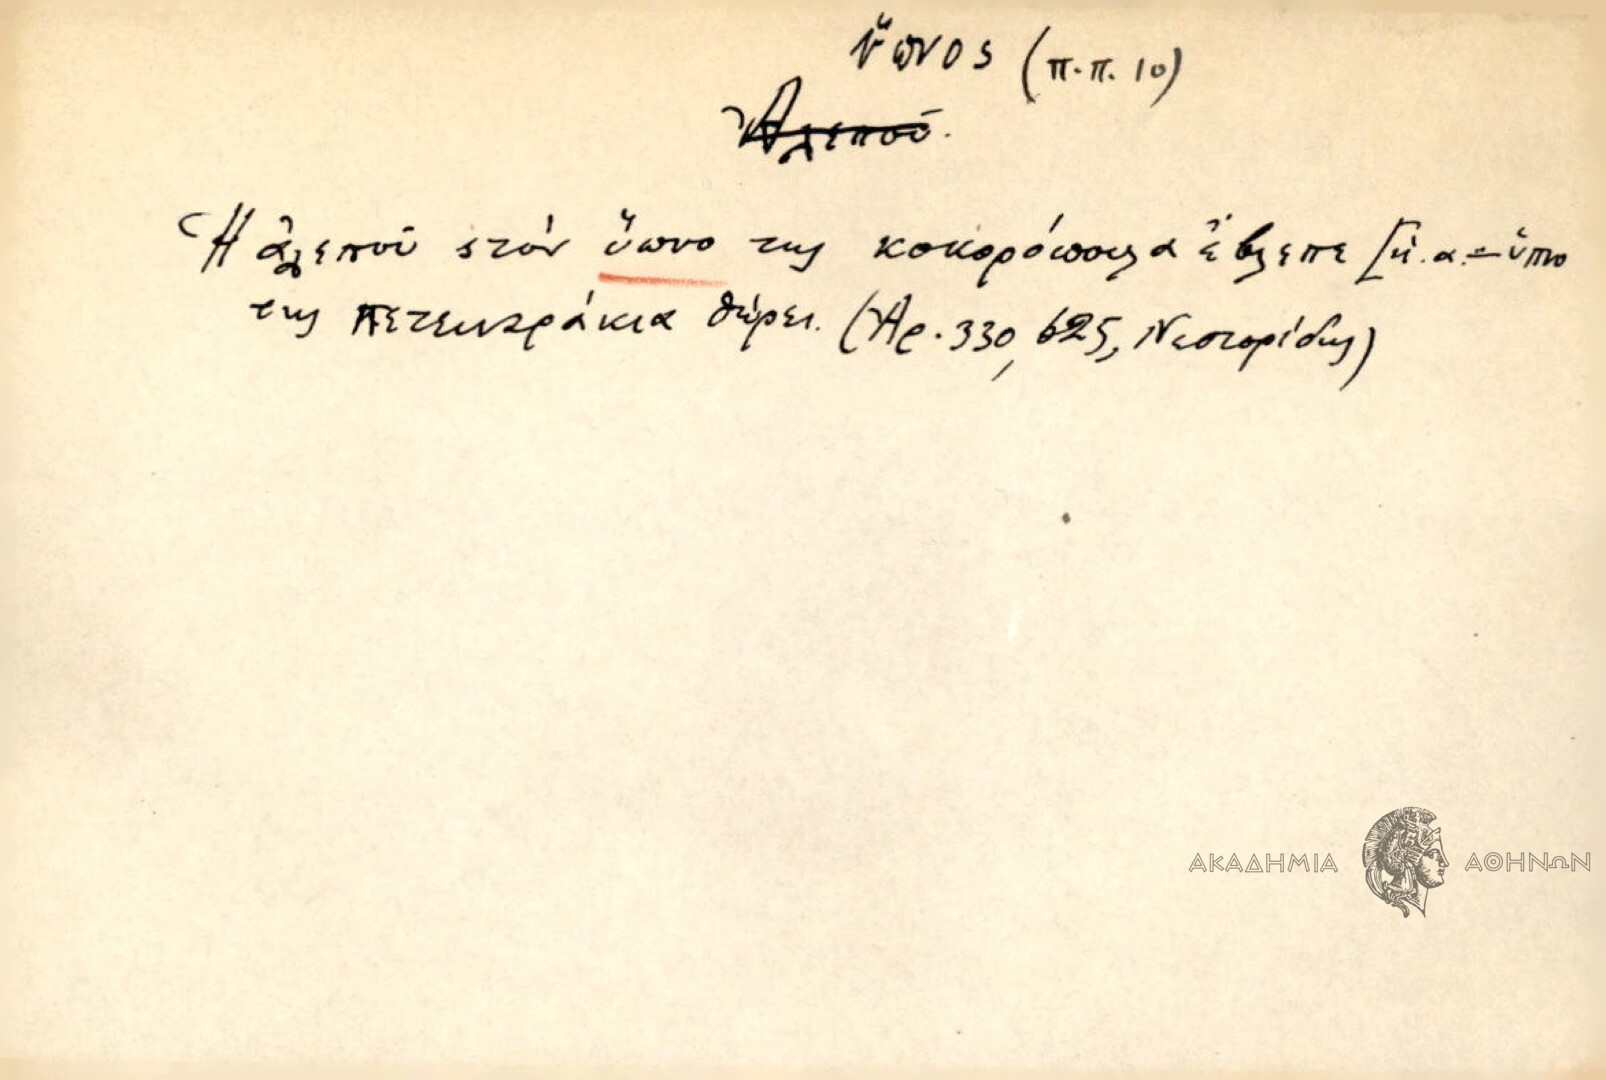 ὕπνος (π.π. 10)
Ἀλεπού.
Ἡ ἀλεπού στόν ὕπνο της κοκορόπουλα ἔβλεπε [ἡ. α. – ὕπνο
της πετεινεράκια θώρει. (Ἀρ. 330, 625, Νεστορίδης)
ΑΚΑΔΗΜΙΑ ΑΘΗΝΩΝ